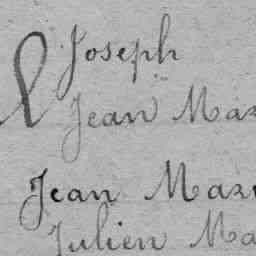 Joseph
Jean Mar
Jean Mar
Julien Ma